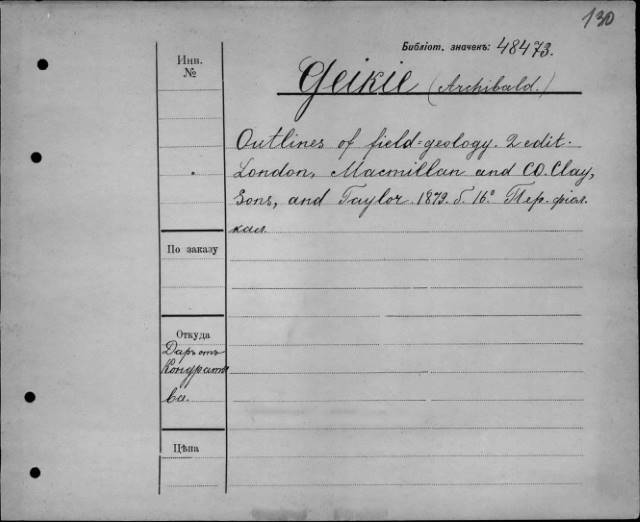 130
Библіот. значекъ: 48473.
Инв.
№
Geikie (Archibald.)
Outlines of field=geology. 2 edit.
London, Macmillan and CO. Clay,
Sons, and Taylor. 1879. б. 16° Пер. фіол.
кал.
По заказу
Откуда
Даръ отъ
Кондратье
ва.
Цѣна